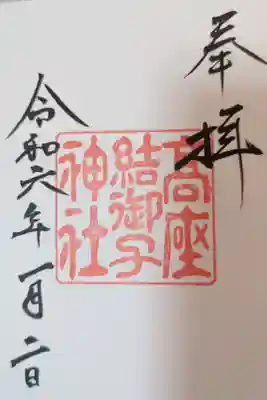 奉拝
高座
結御子
神社
令和六年一月二日